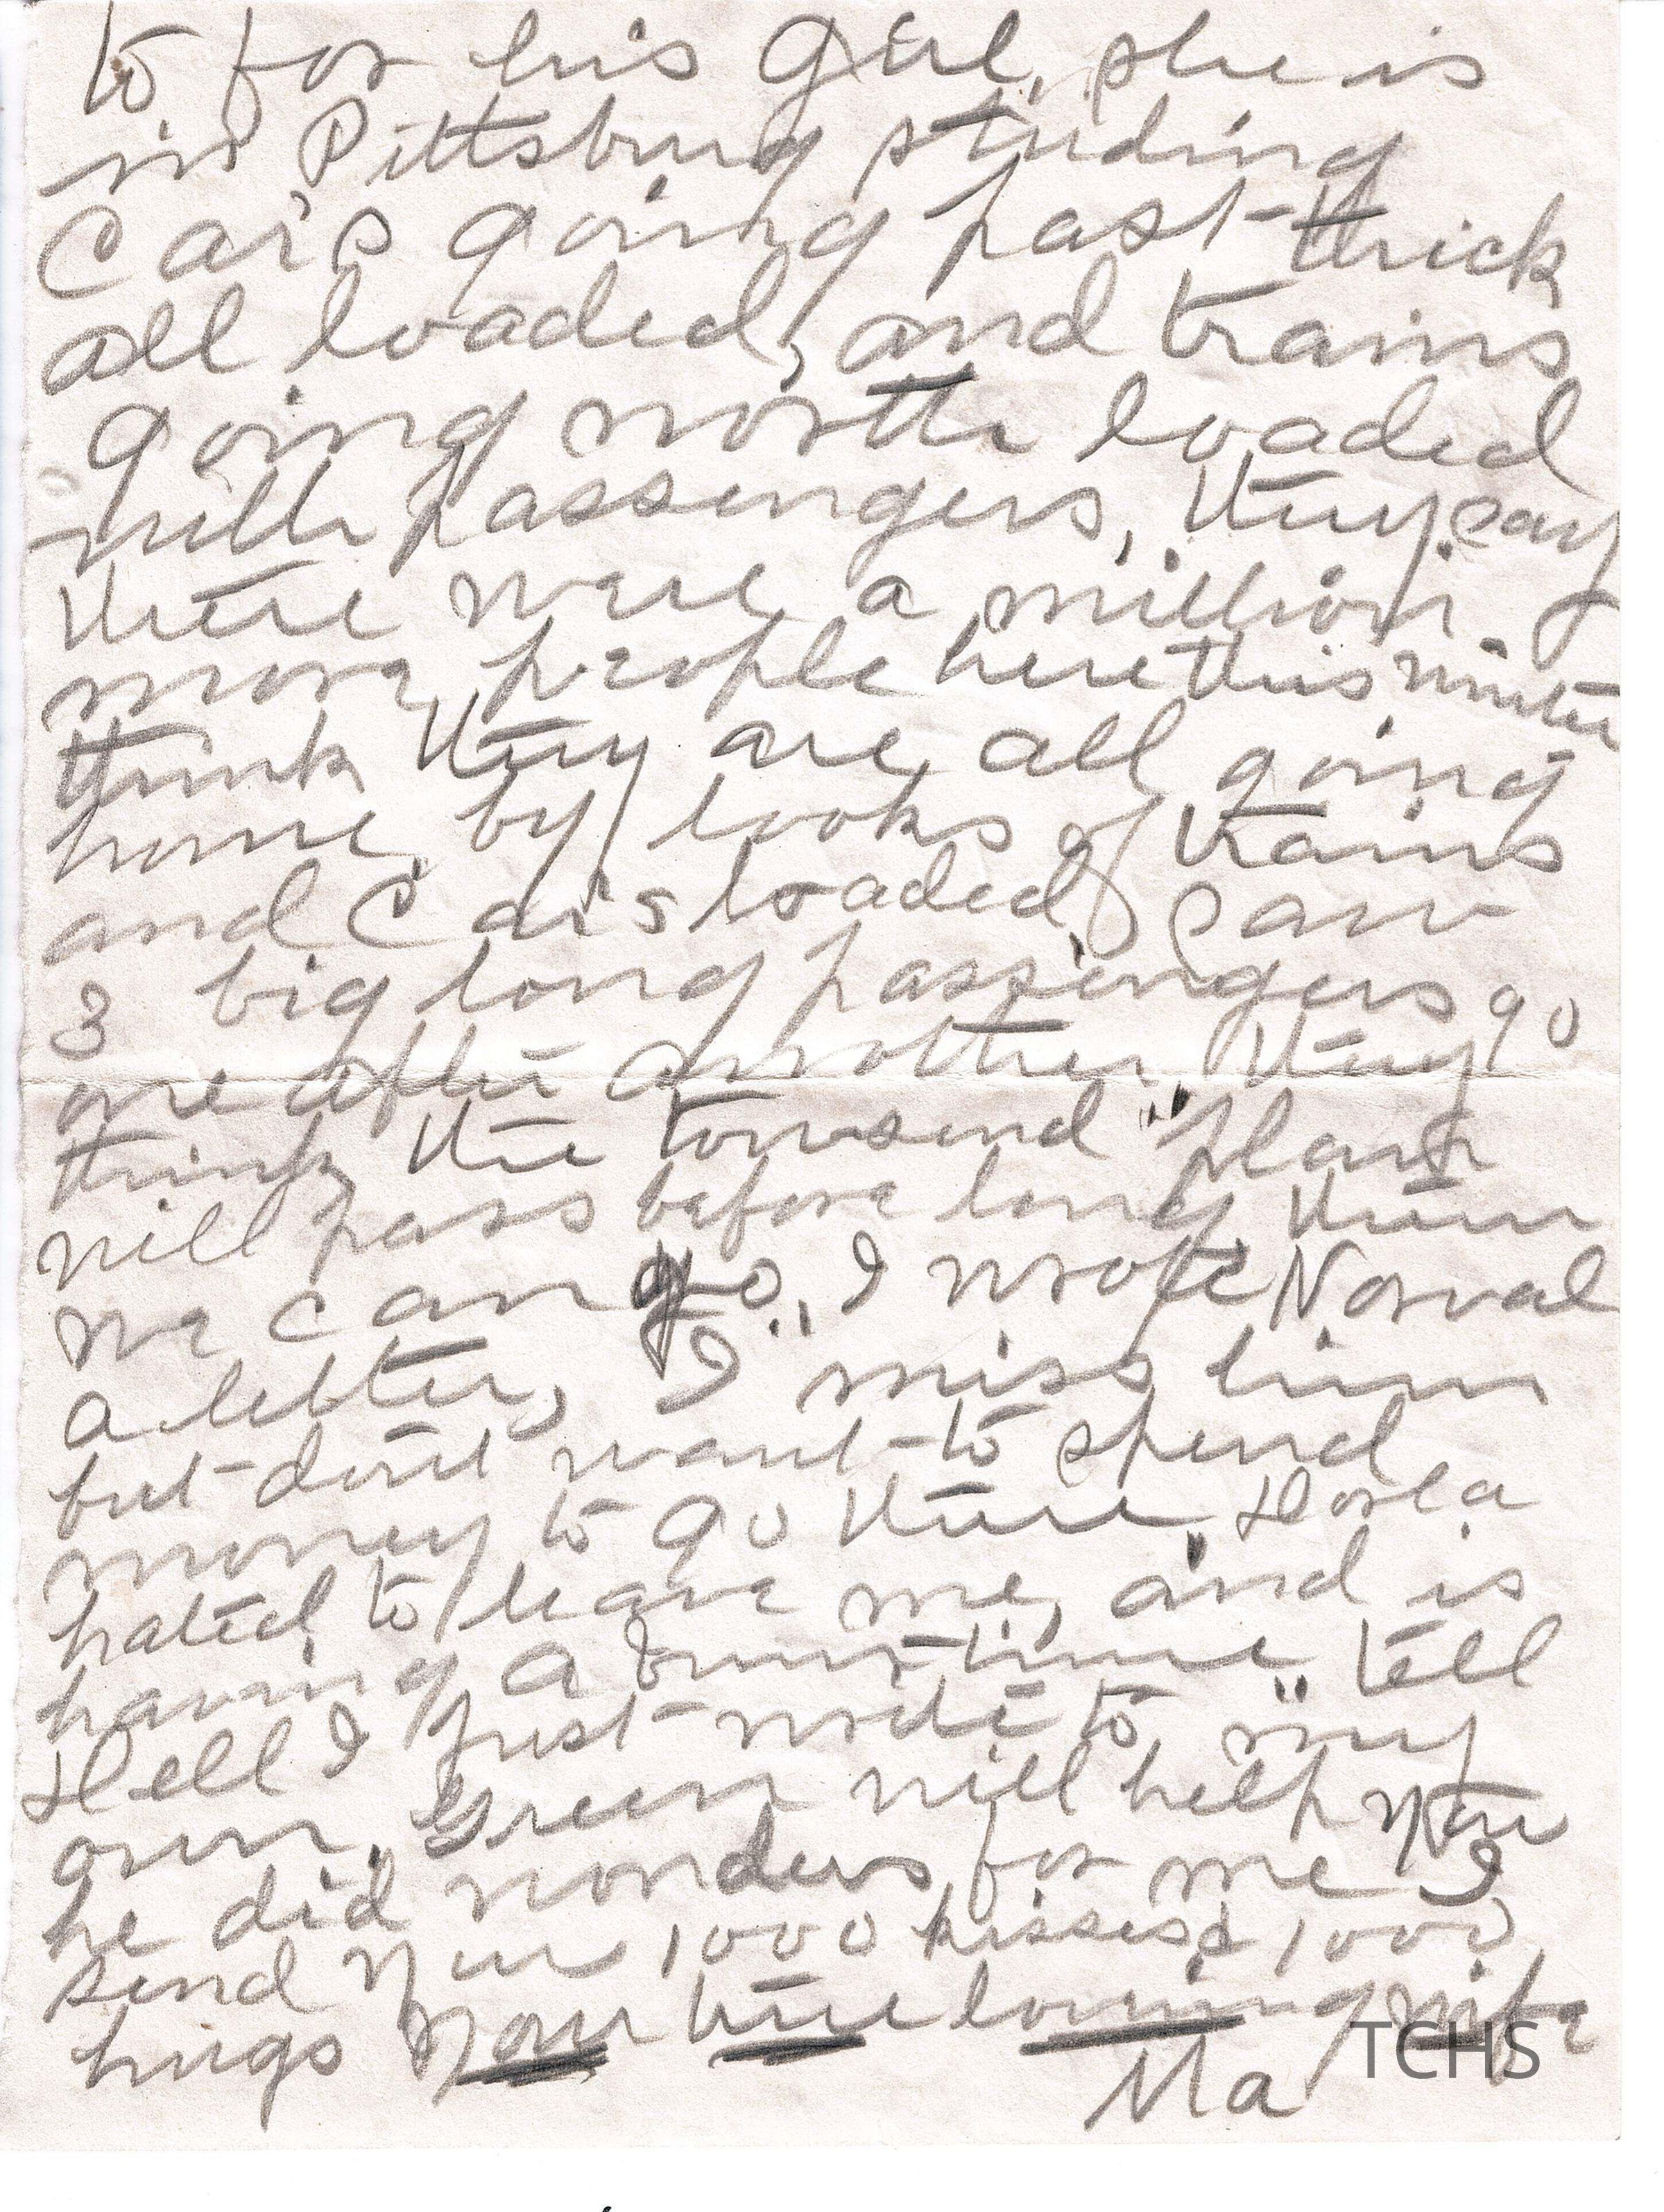 to for his girl, she is
in Pittsburg studing
Car's going past thick
all loaded, and trains
going north loaded
with passengers, they say
there were a million
more people here this winter
think they are all going
home, by looks of trains
and Car's loaded, Saw
3 big long passengers go
one after another, they
think the townsend "plan
will pass before long then
we can go., I wrote Norval
a letter, I miss him
but don't want to spend
money to go there,
hated to leave me, and is
having a time" tell
Dell I just write to my
own. Green will help you
he did wonders for me I
send you 1000 kisses & 1000
hugs your true loving wife
Ma
TCHS